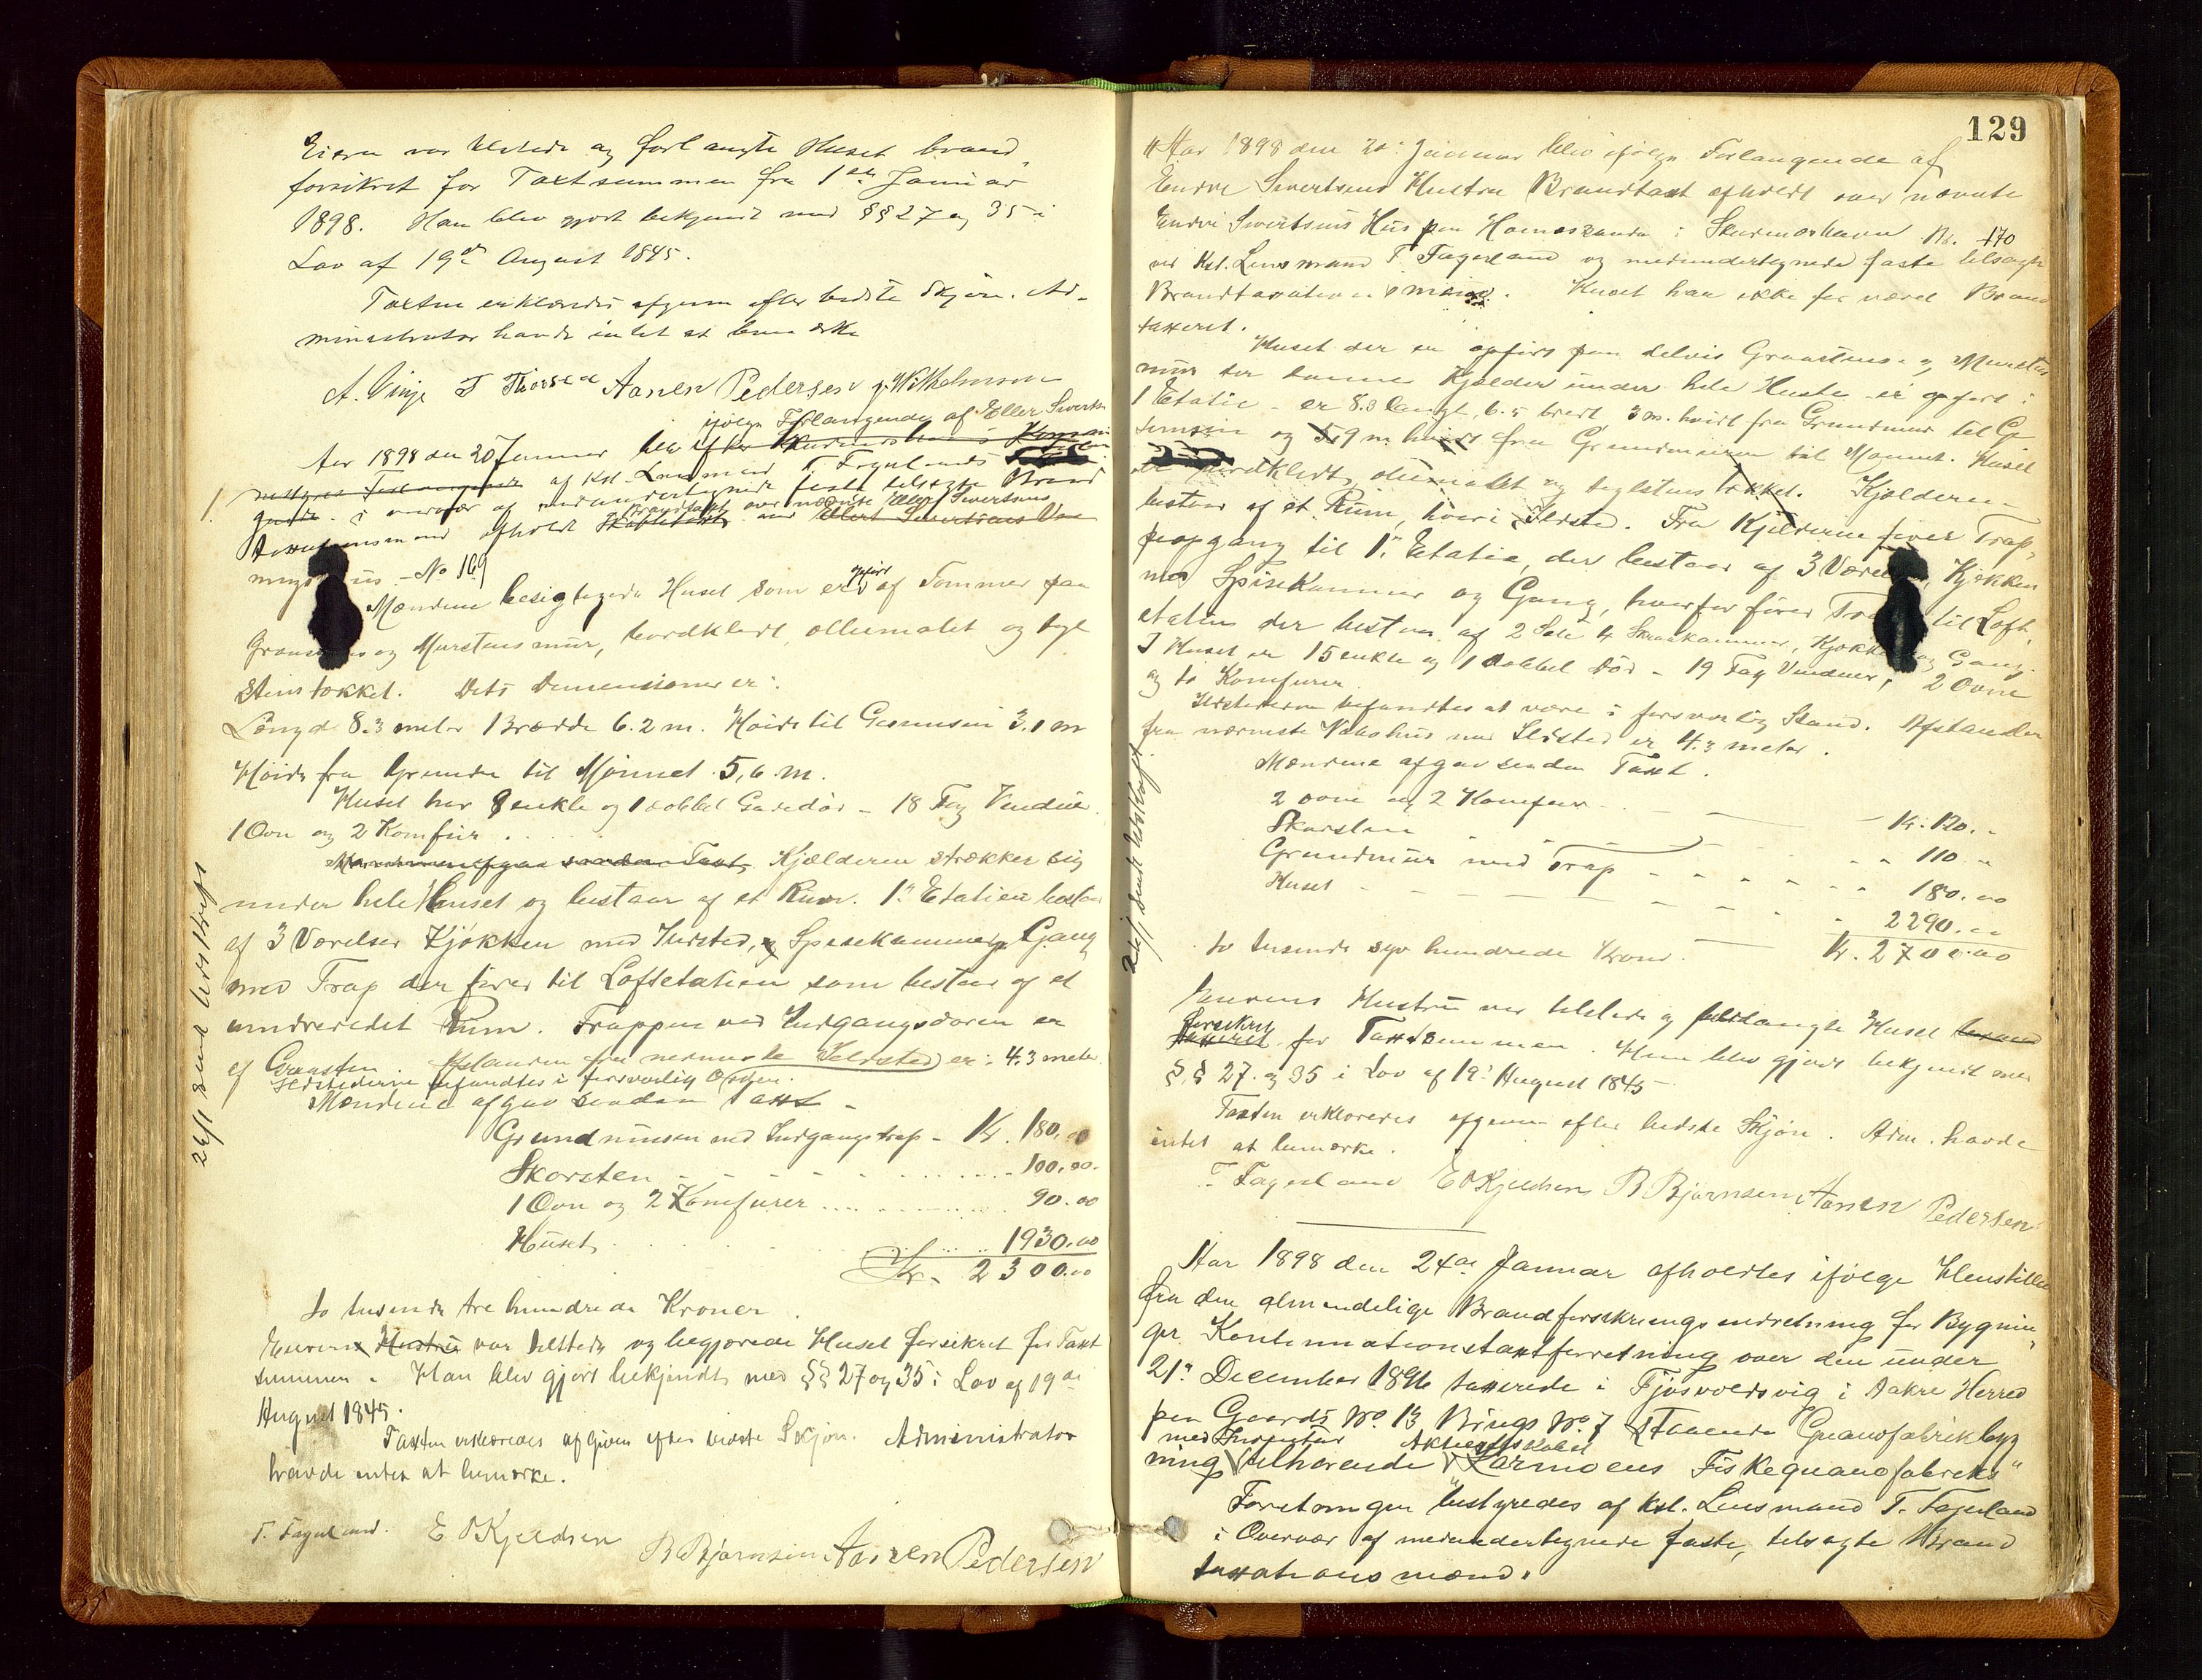 Eieren var tilstede og forlangte Huset brand
forsikret for Taxtsummen fra 1ste Januar
1898. Han blev gjort bekjendt med §§ 27 og 35 i
Lov af 19de August 1845.
Taxten erklæredes afgiven efter bedste Skjøn. Ad-
ministrator havde intet at bemærke
A. Vinje T Thorsen Aanen Pedersen J. Wilhelmsen
ifølge Forlangende af Eller Sivertsen
Aar 1898 den 20 Januar blev
af Kst. Lensmand T. Fagerland
i overvær af medundertegnede faste tilsagte Brand
Brandtaxt over nævnte Eller Sivertsens
Taxtationsmænd afholdt
No 169
Mændene besigtigede Huset som er opført af Tømmer paa
og Murstensmur, bordklædt, olliemalet og tegl
stenstækket. Dets Demensioner er:
Længde 8.3 meter Bredde 6.2 m. Høide til Gesimsen 3,1 m
Høide fra Grunden til Mønnet 5,6 m.
Huset har 8 enkle og 1 dobbel Gadedør - 18 Fag Vinduer
1 Ovn og 2 Komfur.
Mændene afgav saadan Taxt Kjælderen strækker sig
under hele Huset og bestaar af et Rum. 1ste Etatien bestaar
af 3 Værelser Kjøkken med Ildsted, Spisekammer og Gang
med Trap der fører til Loftetatien som bestaar af et
uindredet Rum. Trappen ved Indgangsdøren er
af Graasten. Afstanden fra nermeste Ildsted er: 4.3 meter
Ildstederne befandtes i forsvarlig Orden.
Mændene afgav saadan Taxt -
Grundmuren med Indgangstrap - Kr. 180,00
Skorsten 100,00
1 Ovn og 2 Komfurer 90.00
Huset 1930.00
Kr. 2300.00
to tusende tre hundrede Kroner.
Eieren Hustru var tilstede og begjærede Huset forsikret for Taxt
summen. Han blev gjort bekjendt med §§ 27 og 35 i Lov af 19de
August 1845.
Taxten erklæredes afgiven efter bedste Skjøn. Administrator
havde intet at bemærke.
T. Fagerland. E O Kjeldsen B Bjørnsen Aanen Pedersen
26/1 sendt Udskrift
129
Aar 1898 den 20de Januar blev ifølge Forlangende af
Endre Sivertsens Hustru Brandtaxt afholdt over nævnte
Endre Sivertsens Hus paa i Skudeneshavn No. 170
ved Kst. Lensmand T. Fagerland og medundertegnede faste tilsagte
Brandtaxations mænd. Huset har ikke før været Brand
taxeret.
Huset der er opført paa delvis Graastens- og Murstens
mur der danner Kjælder under hele Huset - er opført i
1 Etatie - er 8.3 langt, 6.5 bredt 3 m. høidt fra Grundmur til Ge
simsen og 5,9 m høidt fra Grundmuren til Mønnet. Huset
er bordklædt, oliemalet og teglstenstækket. Kjælderen
bestaar af et Rum, hvori Ildsted. Fra Kjælderen fører Trap
peopgang til 1ste Etatie, der bestaar af 3 Værelser, Kjøkken
med Spisekammer og Gang, hvorfra fører til Loft,
etatien der bestaar af 2 Sale 4 Skraakammer, Kjøkken og Gang.
I Huset er 15 enkle og 1 dobbel Dør - 19 Fag Vinduer, 2 Ovne
og to Komfurer
Ildstederne befandtes at være i forsvarlig Stand. Afstanden
fra nærmeste Nabohus med Ildsted er 4.3 meter.
Mændene afgav saadan Taxt.
2 ovne og 2 Komfur Kr. 120.-
Skorsten 110 "
Grundmur med Trap 180.00
Huset 2290.00
to tusende syv hundrede Kroner. Kr. 2700.00
Eierens Hustru var tilstede og forlangte Huset brand
forsikret
taxeret for Taxtsummen. Hun blev gjort bekjendt med
§.§ 27. og 35 i Lov af 19de August 1845-
Taxten erklæredes afgiven efter bedste Skjøn. Adm. havde
intet at bemærke.
T. Fagerland E O Kjeldsen B Bjørnsen Aanen Pedersen
Aar 1898 den 24de Januar afholdtes ifølge Henstillen
fra den almindelige Brandforsikringsindretning for Bygnin
ger Kontinuationstaxtforretning over den under
21de December 1896 taxerede i Fjøsvoldsvig i Aakre Herred
paa Gaards No. 13 Brugs No. 7 staaende Guanofabrikbyg
med Inventar Aktieselskabet
ning tilhørende "Karmøens Fiskeguanofabrik"
Forretningen bestyredes af Kst. Lensmand T. Fagerland
i Overvær af medundertegnede faste, tilsagte Brand
taxationsmænd.